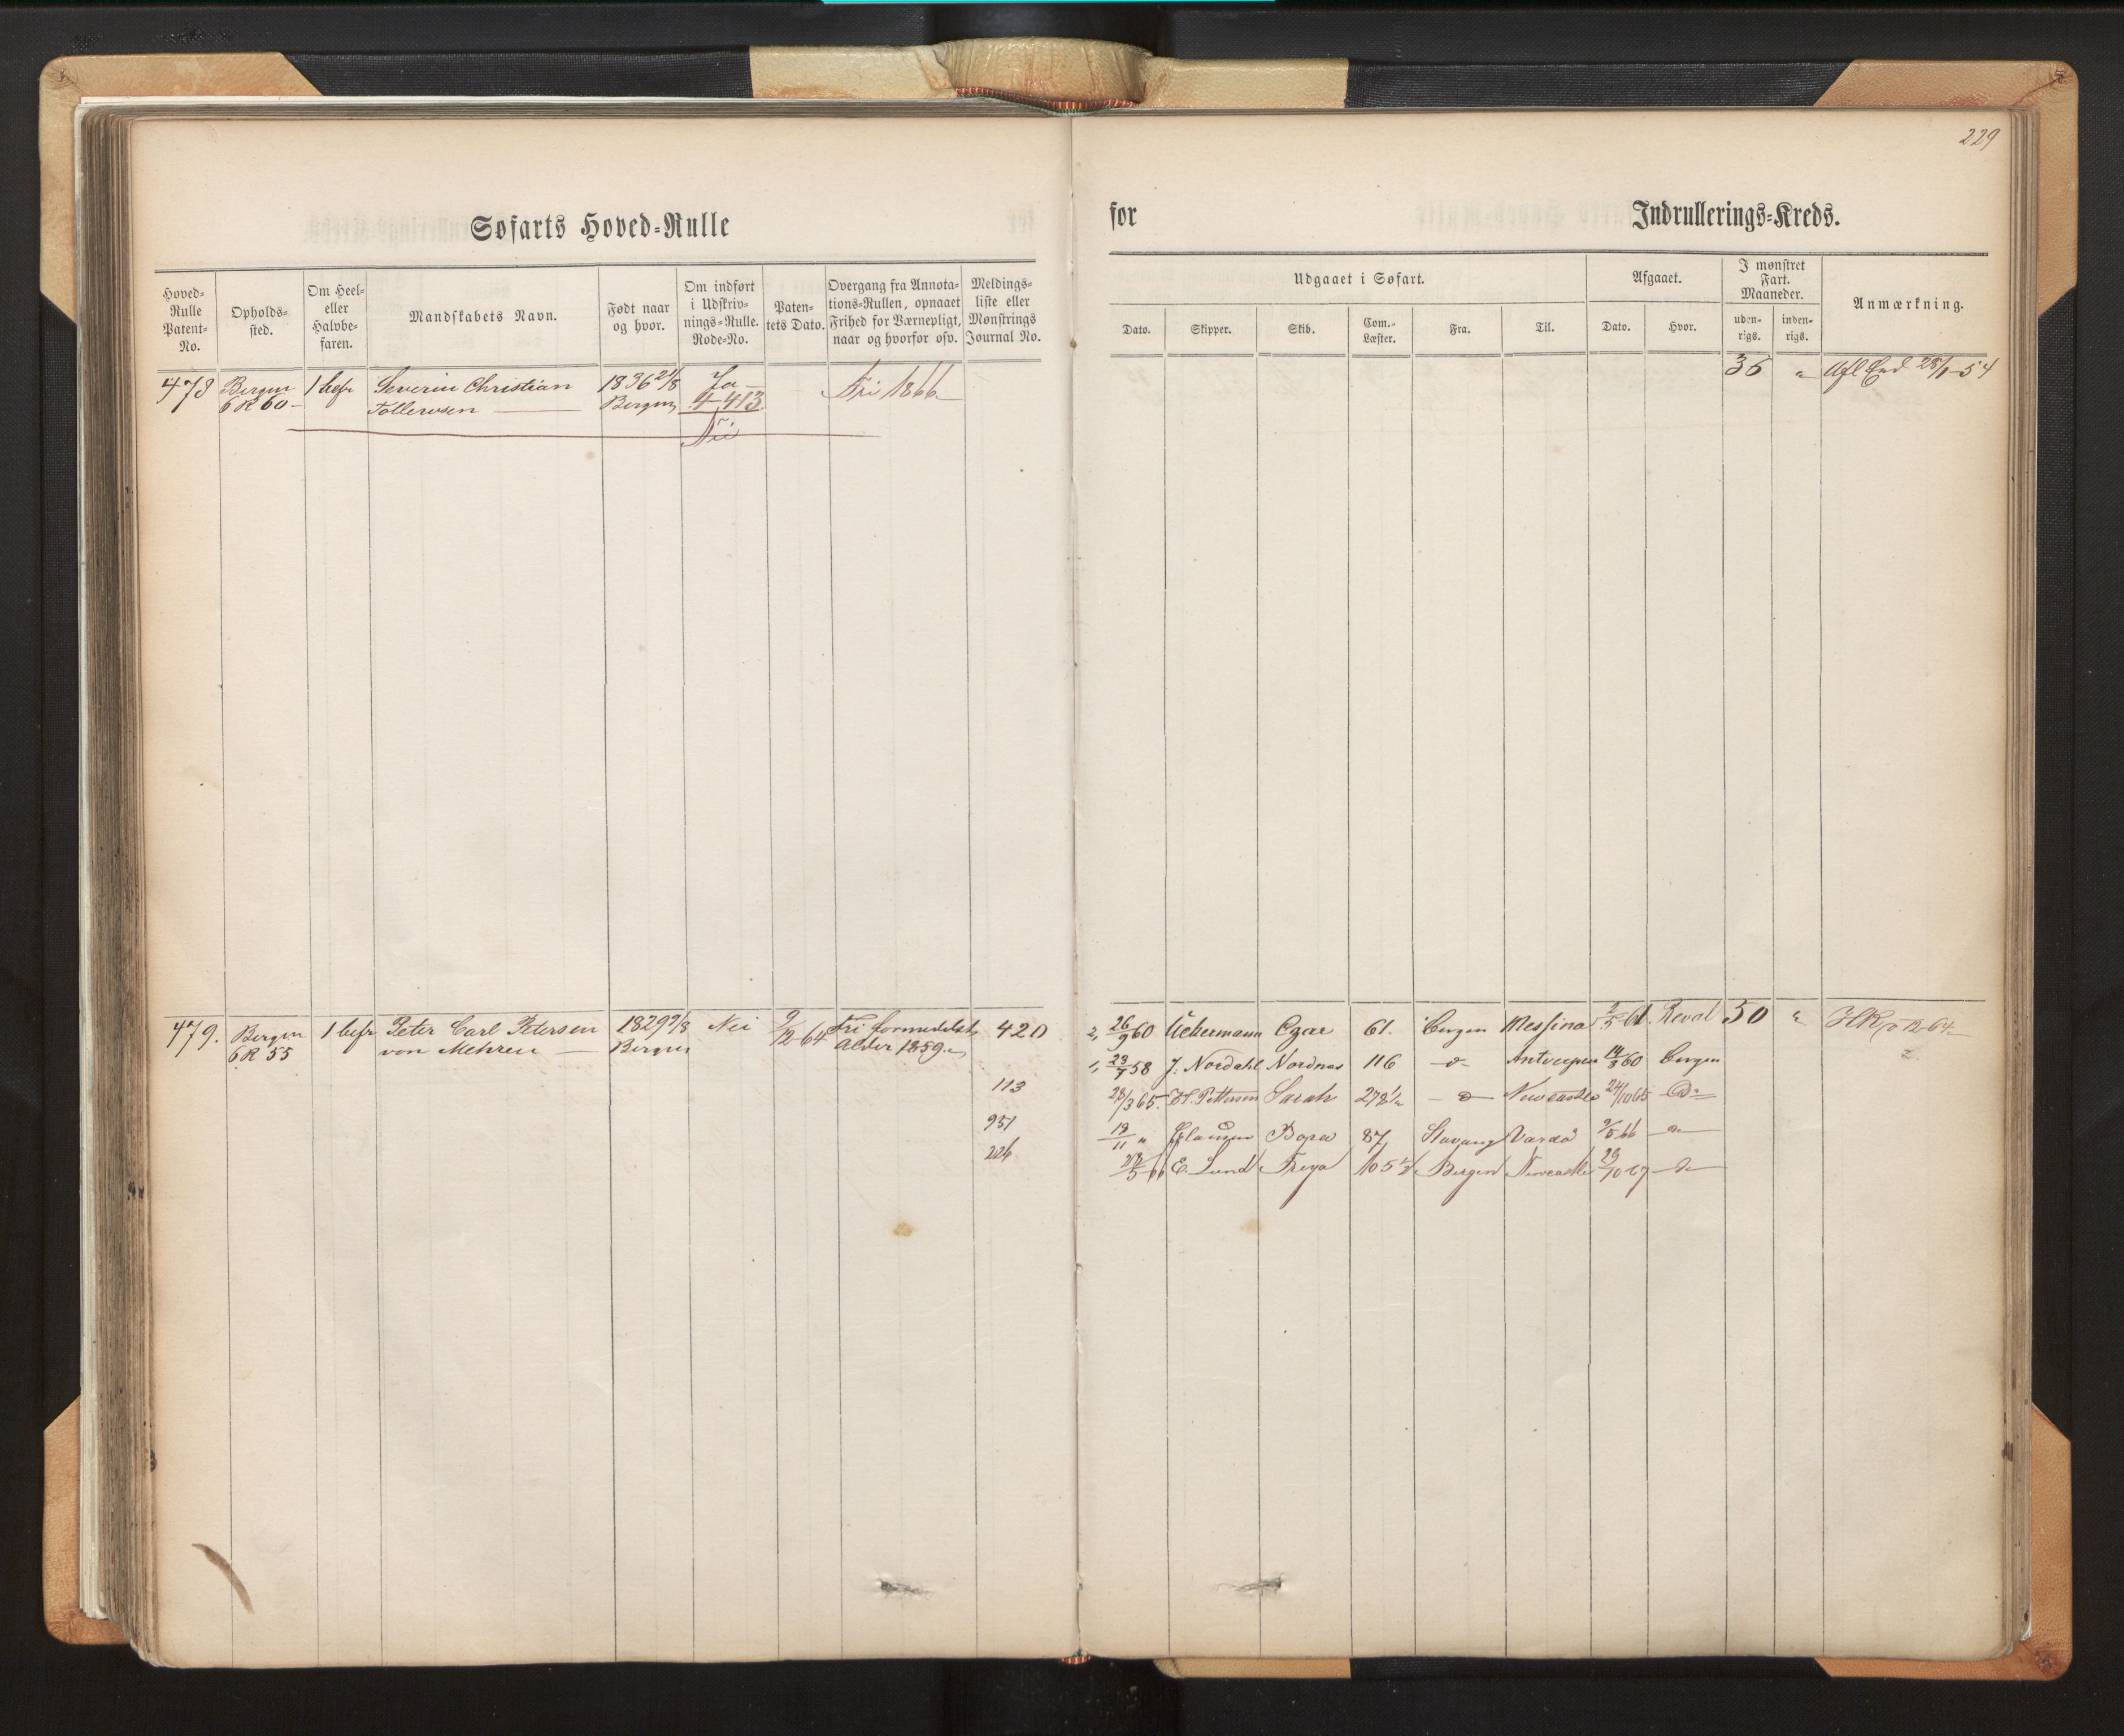 229
Søfarts Hoved-Rulle
for
Indrullerings-Kreds.
Hoved-
Rulle
Patent-
No.
Opholds-
sted.
Om Heel-
eller
Halvbe-
faren.
Mandskabets Navn.
Født naar
og hvor.
Om indført
i Udskriv-
nings-Rulle.
Rode-No.
Paten-
tets Dato.
Overgang fra Annota-
tions-Rullen, opnaaet
Frihed for Værnepligt,
naar og hvorfor osv.
Meldings-
liste eller
Mønstrings
Journal No.
Udgaaet i Søfart.
Dato.
Skipper.
Skib.
Com.-
Læster.
Fra.
Til.
Afgaaet.
Dato.
Hvor.
I mønstret
Fart.
Maaneder.
uden-
rigs.
inden-
rigs.
Anmærkning.
478
Bergen
6 R 60 -
1 befr
Severin Christian
Tollevsen
1836 21/8
Bergen
Ja -
4 413
Nei
Fri 1866
36 "
28/1-54
479.
Bergen
6 R 55
1 befr
Peter Carl Petersen
von Mehren
1829 7/8
Bergen
Nei
9/12-64
Fri formedelst
Alder 1859
420
2, 26/9 60 Uchermann Czar 61. Bergen Messina Reval 50 "
1, 23/7 58 J. Nordahl Nordnæs 116 - d - Antwerpen 14/3 60 Bergen
113
28/3 65. Pettersen Sarah 278 1/2 - d - Newcastle 24/10 65 - Do -
951
19/11 " Clausen 87 Stavang Vardø 9/5 66 - d -
226
28/5 66 E. Lund Freya 105 1/2 Bergen Newcastle 23/10 67 - d -